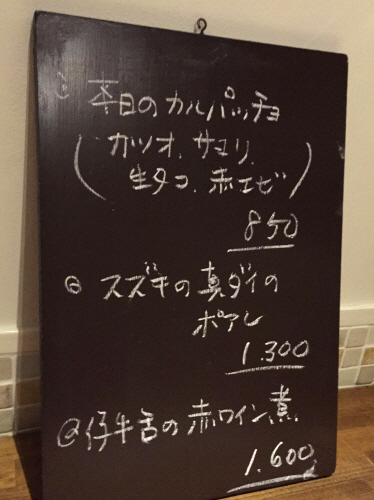 本日のカルパッチョ
(カツオ、サヨリ、
生タコ、赤エビ)
850
スズキの真ダイの
ポアレ
1.300
仔牛舌の赤ワイン煮
1.600